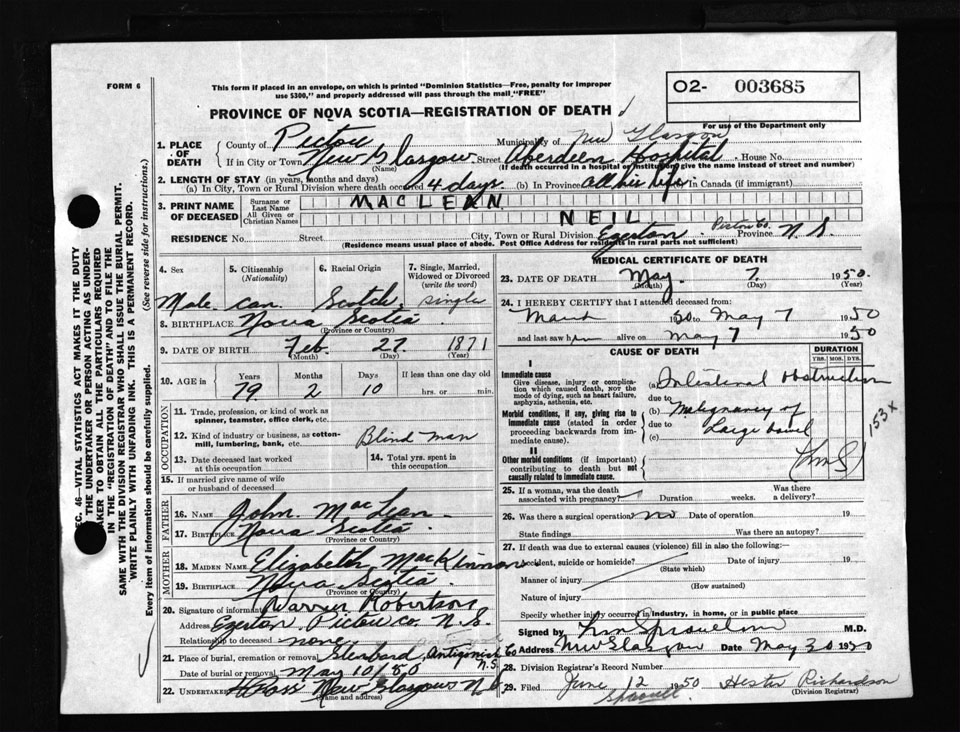 FORM 6
This form if placed in an envelope, on which is printed "Dominion Statistics—Free, penalty for improper
use $300," and properly addressed will pass through the mail "FREE"
O2- 003685
PROVINCE OF NOVA SCOTIA—REGISTRATION OF DEATH
For use of the Department only
1. PLACE OF DEATH
County of Pictou Municipality of New Glasgow
If in City or Town New Glasgow Street Aberdeen Hospital House No.
(Name) (If death occurred in a hospital or institution, give the name instead of street and number)
2. LENGTH OF STAY (in years, months and days)
(a) In City, Town or Rural Division where death occurred 4 days (b) In Province all his life In Canada (if immigrant)
3. PRINT NAME OF DECEASED
Surname or Last Name MACLEAN
All Given or Christian Names NEIL
RESIDENCE No. Street City, Town or Rural Division Egerton Pictou Co. Province N S.
(Residence means usual place of abode. Post Office Address for residents in rural parts not sufficient)
4. Sex
5. Citizenship (Nationality)
6. Racial Origin
7. Single, Married, Widowed or Divorced (write the word)
Male can. Scotch. single
8. BIRTHPLACE Nova Scotia
(Province or Country)
9. DATE OF BIRTH Feb. 27 1871
(Month) (Day) (Year)
10. AGE in
Years Months Days If less than one day old
79 2 10 hrs. or min.
OCCUPATION
11. Trade, profession, or kind of work as spinner, teamster, office clerk, etc.
12. Kind of industry or business, as cotton-mill, lumbering, bank, etc. Blind man
13. Date deceased last worked at this occupation
14. Total yrs. spent in this occupation
15. If married give name of wife or husband of deceased
FATHER
16. NAME John MacLean
17. BIRTHPLACE Nova Scotia.
(Province or Country)
MOTHER
18. MAIDEN NAME Elizabeth MacKinnon
19. BIRTHPLACE Nova Scotia
(Province or Country)
20. Signature of informant Warren Robertson
Address Egerton, Pictou co. N.S.
Relationship to deceased none
21. Place of burial, cremation or removal Antigonish Co N.S.
Date of burial or removal May 10/50
22. Undertaker New Glasgow N.S.
(Name and address)
MEDICAL CERTIFICATE OF DEATH
23. DATE OF DEATH May 7 1950.
(Month) (Day) (Year)
24. I HEREBY CERTIFY that I attended deceased from
March 1950 to May 7 1950
and last saw him alive on May 7 1950
CAUSE OF DEATH
DURATION
YRS. MOS. DYS.
I
Immediate cause
Give disease, injury or complication which caused death, NOT the mode of dying, such as heart failure, asphyxia, asthenia, etc.
(a) Intestinal Obstruction
due to
Morbid conditions, if any, giving rise to immediate cause (stated in order proceeding backwards from immediate cause).
(b) Malignancy of
due to Large bowel
(c)
153 x
II
Other morbid conditions (if important) contributing to death but not causally related to immediate cause.
25. If a woman, was the death associated with pregnancy? Duration weeks. Was there a delivery?
26. Was there a surgical operation no Date of operation 19
State findings Was there an autopsy?
27. If death was due to external causes (violence) fill in also the following:—
Accident, suicide or homicide? Date of injury 19
(State which)
Manner of injury
(How sustained)
Nature of injury
Specify whether injury occurred in industry, in home, or in public place
Signed by M.D.
Address New Glasgow Date May 30 1950
28. Division Registrar's Record Number
29. Filed June 12 1950 Hester Richardson
(Division Registrar)
SEC. 46—VITAL STATISTICS ACT MAKES IT THE DUTY
OF THE UNDERTAKER OR PERSON ACTING AS UNDER-
TAKER TO OBTAIN ALL THE PARTICULARS REQUIRED
IN THE "REGISTRATION OF DEATH" AND TO FILE THE
SAME WITH THE DIVISION REGISTRAR WHO SHALL ISSUE THE BURIAL PERMIT.
WRITE PLAINLY WITH UNFADING INK. THIS IS A PERMANENT RECORD.
Every item of information should be carefully supplied. (See reverse side for instructions.)